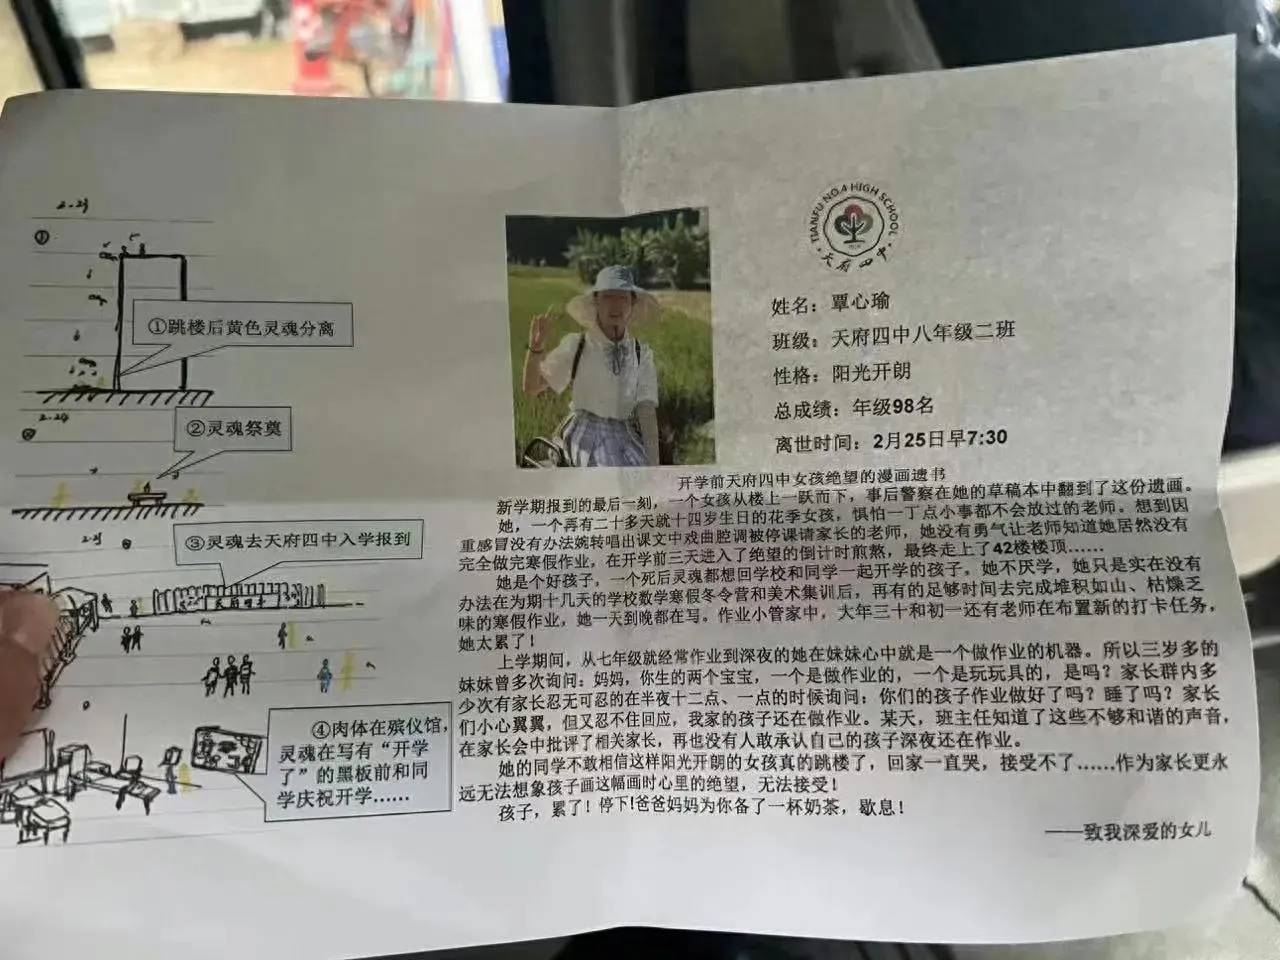 2-23
①
①跳楼后黄色灵魂分离
2-24
②
②灵魂祭奠
2-25
③
③灵魂去天府四中入学报到
天府四中
④肉体在殡仪馆，
灵魂在写有“开学
了”的黑板前和同
学庆祝开学……
TIANFU NO.4 HIGH SCHOOL
天府四中
姓名：覃心瑜
班级：天府四中八年级二班
性格：阳光开朗
总成绩：年级98名
离世时间：2月25日早7:30
开学前天府四中女孩绝望的漫画遗书
新学期报到的最后一刻，一个女孩从楼上一跃而下，事后警察在她的草稿本中翻到了这份遗画。
她，一个再有二十多天就十四岁生日的花季女孩，惧怕一丁点小事都不会放过的老师。想到因
重感冒没有办法婉转唱出课文中戏曲腔调被停课请家长的老师，她没有勇气让老师知道她居然没有
完全做完寒假作业，在开学前三天进入了绝望的倒计时煎熬，最终走上了42楼楼顶……
她是个好孩子，一个死后灵魂都想回学校和同学一起开学的孩子，她不厌学，她只是实在没有
办法在为期十几天的学校数学寒假冬令营和美术集训后，再有的足够时间去完成堆积如山、枯燥乏
味的寒假作业，她一天到晚都在写。作业小管家中，大年三十和初一还有老师在布置新的打卡任务，
她太累了！
上学期间，从七年级就经常作业到深夜的她在妹妹心中就是一个做作业的机器。所以三岁多的
妹妹曾多次询问：妈妈，你生的两个宝宝，一个是做作业的，一个是玩玩具的，是吗？家长群内多
少次有家长忍无可忍的在半夜十二点、一点的时候询问：你们的孩子作业做好了吗？睡了吗？家长
们小心翼翼，但又忍不住回应，我家的孩子还在做作业。某天，班主任知道了这些不够和谐的声音，
在家长会中批评了相关家长，再也没有人敢承认自己的孩子深夜还在作业。
她的同学不敢相信这样阳光开朗的女孩真的跳楼了，回家一直哭，接受不了……作为家长更永
远无法想象孩子画这幅画时心里的绝望，无法接受！
孩子，累了！停下！爸爸妈妈为你备了一杯奶茶，歇息！
——致我深爱的女儿